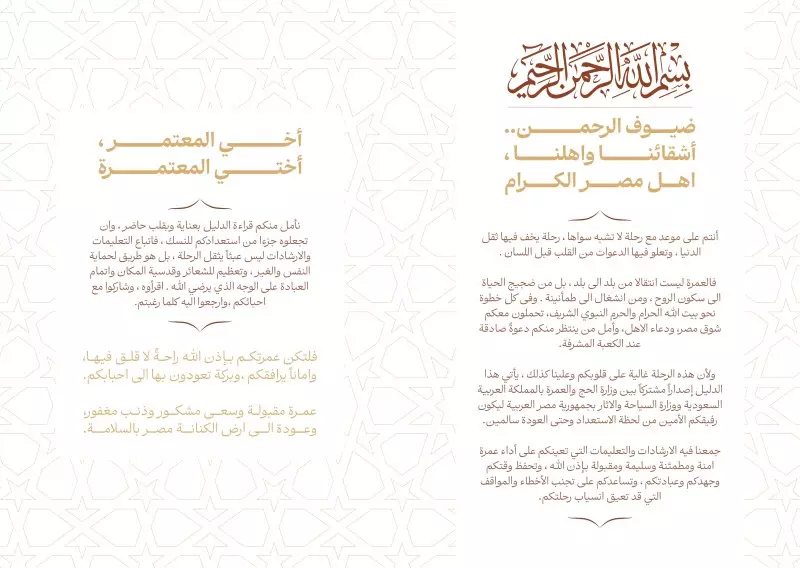 بسم الله الرحمن الرحيم
ضيـوف الرحمـــن..
أشقائنـــا واهلنـــا ،
اهـل مصـــر الكــرام
أنتم على موعد مع رحلة لا تشبه سواها ، رحلة يخف فيها ثقل
الدنيا ، وتعلو فيها الدعوات من القلب قبل اللسان .
فالعمرة ليست انتقالا من بلد الى بلد ، بل من ضجيج الحياة
الى سكون الروح ، ومن انشغال الى طمأنينة . وفى كل خطوة
نحو بيت الله الحرام والحرم النبوي الشريف، تحملون معكم
شوق مصر، ودعاء الاهل، وأمل من ينتظر منكم دعوةً صادقة
عند الكعبة المشرفة.
ولأن هذه الرحلة غالية على قلوبكم وعلينا كذلك ، يأتي هذا
الدليل إصداراً مشتركاً بين وزارة الحج والعمرة بالمملكة العربية
السعودية ووزارة السياحة والاثار بجمهورية مصر العربية ليكون
رفيقكم الأمين من لحظة الاستعداد وحتى العودة سالمين.
جمعنا فيه الارشادات والتعليمات التي تعينكم على أداء عمرة
امنة ومطمئنة وسليمة ومقبولة بإذن الله ، وتحفظ وقتكم
وجهدكم وعبادتكم ، وتساعدكم على تجنب الأخطاء والمواقف
التي قد تعيق انسياب رحلتكم.
أخـــي المعتمـــر ،
أختـــي المعتمـــرة
نأمل منكم قراءة الدليل بعناية وبقلب حاضر ، وان
تجعلوه جزءا من استعدادكم للنسك ، فاتباع التعليمات
والارشادات ليس عبئاً يثقل الرحلة ، بل هو طريق لحماية
النفس والغير ، وتعظيم للشعائر وقدسية المكان واتمام
العبادة على الوجه الذي يرضي الله . اقرأوه ، وشاركوا مع
احبائكم ،وارجعوا اليه كلما رغبتم.
فلتكن عمرتكم بـإذن الله راحـةً لا قلـق فيهـا،
وامانـاً يرافقكم ،وبركة تعودون بها الى احبابكم.
عمـرة مقبولـة وسعـى مشكـور وذنـب مغفور،
وعـودة الـى ارض الكنانـة مصـر بالسلامـة.